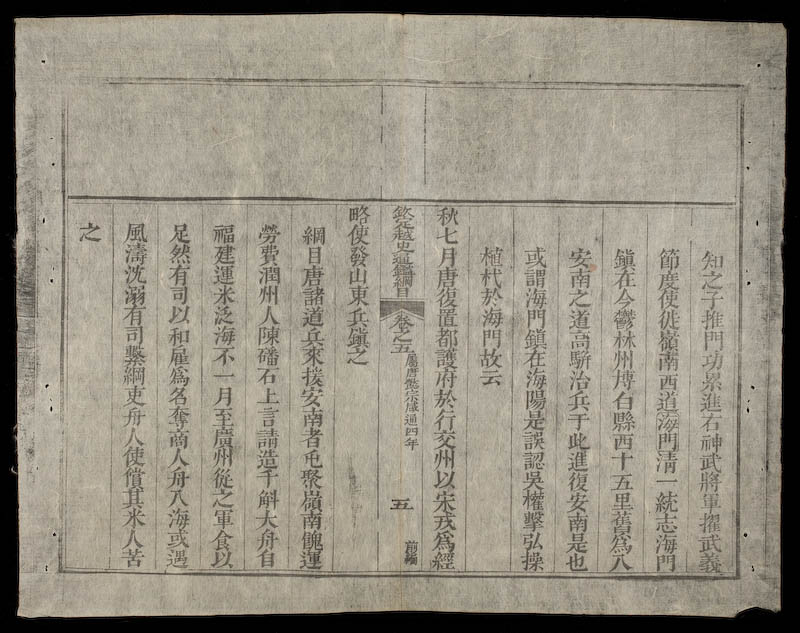 知之子推門功累進右神武將軍擢武義
節度使徙嶺南西道海門清一統志海門
鎮在今鬱林州博白縣西十五里舊為入
安南之道高駢治兵于此進復安南是也
或謂海門鎮在海陽是誤認吳權擊弘操
植杙於海門故云
秋七月唐復置都護府於行交州以宋戎為經
欽定越史通鑑綱目 卷之五 屬唐懿宗咸通四年 五 前編
略使發山東兵鎮之
綱目唐諸道兵來援安南者屯聚嶺南餽運
勞費潤州人陳磻石上言請造千斛大舟自
福建運米泛海不一月至廣州從之軍食以
足然有司以和雇為名奪商人舟入海或遇
風濤沈溺有司繫綱吏舟人使償其米人苦
之